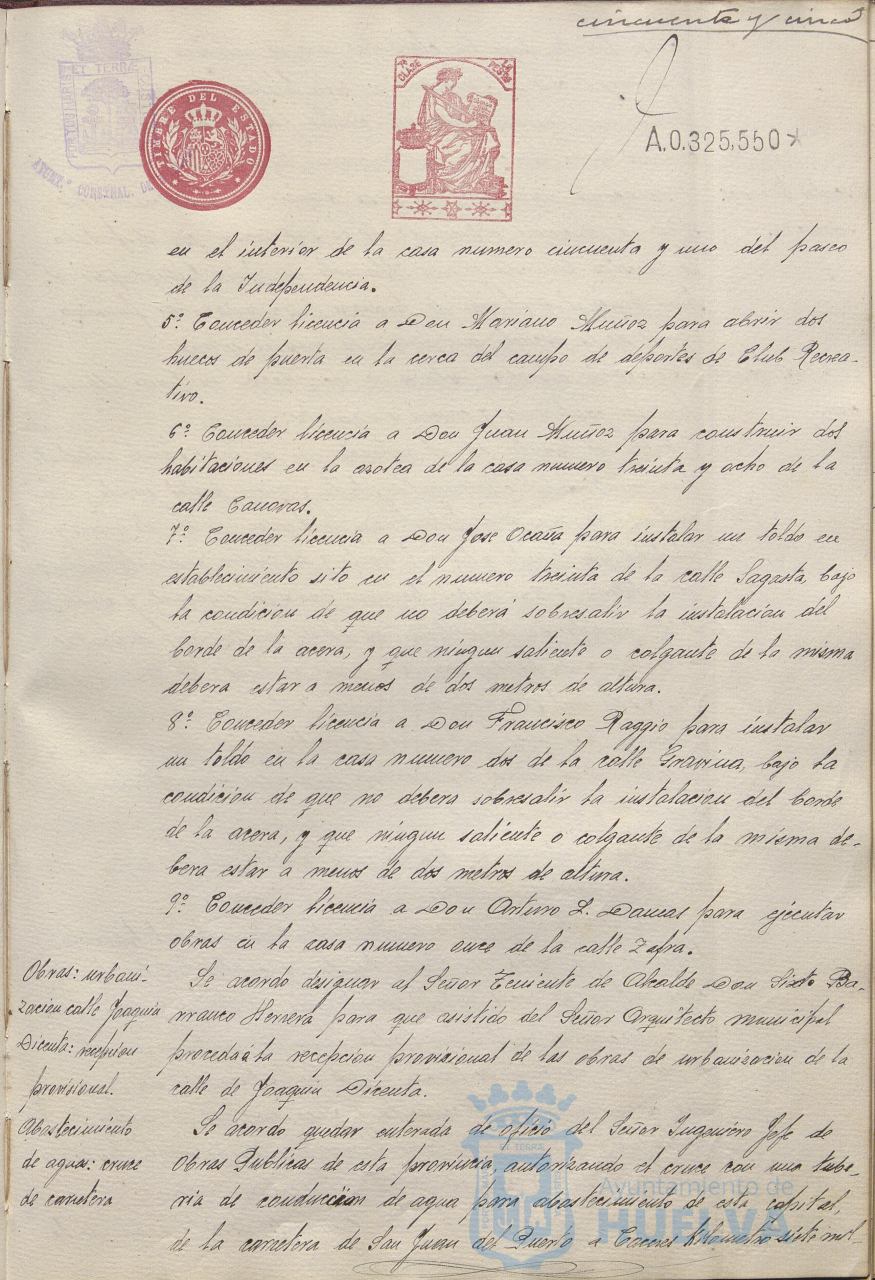 cincuenta y cinco
ET TERRAE
AYUNT.º CONSTNAL. DE
TIMBRE DEL ESTADO
7ª CLASE
PESETAS
A.0.325,550*
en el interior de la casa numero cincuenta y uno del paseo
de la Independencia.
5º Conceder licencia a Don Mariano Muñoz para abrir dos
huecos de puerta en la cerca del campo de deportes de Club Recrea-
tivo.
6º Conceder licencia a Don Juan Muñoz para construir dos
habitaciones en la azotea de la casa numero treinta y ocho de la
calle Canovas.
7º Conceder licencia a Don Jose Ocaña para instalar un toldo en
establecimiento sito en el numero treinta de la calle Sagasta, bajo
la condicion de que no deberá sobresalir la instalacion del
borde de la acera, y que ningun saliente o colgante de la misma
debera estar a menos de dos metros de altura.
8º Conceder licencia a Don Francisco Raggio para instalar
un toldo en la casa numero dos de la calle Gravina, bajo la
condicion de que no debera sobresalir la instalacion del borde
de la acera, y que ningun saliente o colgante de la misma de-
bera estar a menos de dos metros de altura.
9º Conceder licencia a Don Arturo L. Damas para ejecutar
obras en la casa numero once de la calle Zafra.
Obras: urbani-
zacion calle Joaquin
Dicenta: recepcion
provisional.
Se acordo designar al Señor Teniente de Alcalde Don Sixto Ba-
rranco Herrera para que asistido del Señor Arquitecto municipal
proceda á la recepcion provisional de las obras de urbanizacion de la
calle de Joaquin Dicenta.
Abastecimiento
de aguas: cruce
de carretera
Se acordo quedar enterada de oficio del Señor Ingeniero Jefe de
Obras Publicas de esta provincia, autorizando el cruce con una tube-
ria de conduccion de agua para abastecimiento de esta capital,
de la carretera de San Juan del Puerto a Caceres kilometro siete mil-
Ayuntamiento de
HUELVA